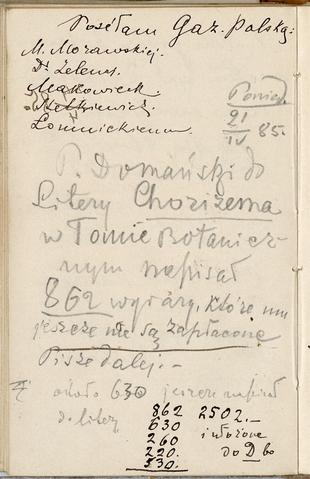 Posełam Gaz. Polską:
M. Morawskiej.
Dr Zelens.
Makowieck.
Metkiewicz.
Łomnickiemu
Ponied.
21/IV 85.
P. Domański do
Litery Chorizema
w Tomie Botanicz-
nym napisał
862 wyrazy, które mu
jeszcze nie są zapłacone
Pisze dalej.–
około 630 jeszcze napisał
do litery
862 2502.–
630 i włożone
260 do D bo
220.
530.